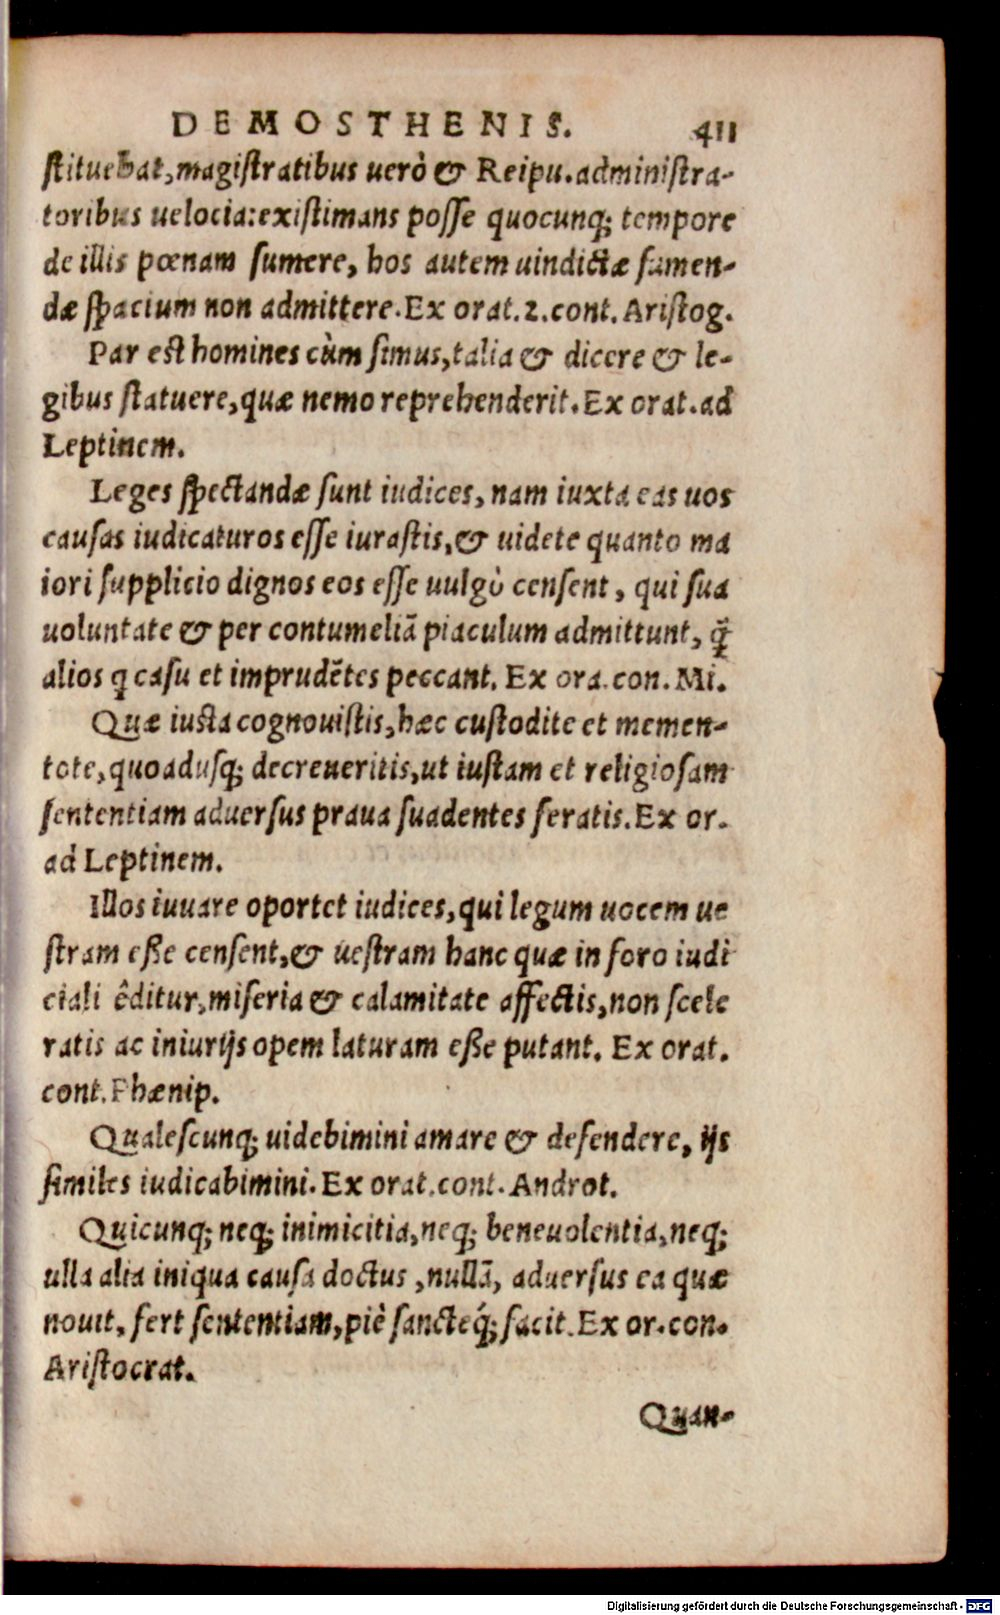 DEMOSTHENIS. 411
ſtituebat, magiſtratibus uerò & Reipu. adminiſtra-
toribus uelocia: exiſtimans poſſe quocunq; tempore
de illis pœnam ſumere, hos autem uindictæ ſumen-
dæ ſpacium non admittere. Ex orat. 2. cont. Ariſtog.
Par eſt homines cùm ſimus, talia & dicere & le-
gibus ſtatuere, quæ nemo reprehenderit. Ex orat. ad
Leptinem.
Leges ſpectandæ ſunt iudices, nam iuxta eas uos
cauſas iudicaturos eſſe iuraſtis, & uidete quanto ma
iori ſupplicio dignos eos eſſe uulgò cenſent, qui ſua
uoluntate & per contumeliã piaculum admittunt, q̃
alios q caſu et imprudẽtes peccant. Ex ora. con. Mi.
Quæ iuſta cognouiſtis, hæc cuſtodite et memen-
tote, quoadusq; decreueritis, ut iuſtam et religioſam
ſententiam aduerſus praua ſuadentes feratis. Ex or.
ad Leptinem.
Illos iuuare oportet iudices, qui legum uocem ue
ſtram eſſe cenſent, & ueſtram hanc quæ in foro iudi
ciali êditur, miſeria & calamitate affectis, non ſcele
ratis ac iniurijs opem laturam eſſe putant. Ex orat.
cont. Phænip.
Qualeſcunq; uidebimini amare & defendere, ijs
ſimiles iudicabimini. Ex orat. cont. Androt.
Quicunq; neq; inimicitia, neq; beneuolentia, neq;
ulla alia iniqua cauſa doctus, nullã, aduerſus ea quæ
nouit, fert ſententiam, piè ſancteq́; facit. Ex or. con.
Ariſtocrat.
Quan-
Digitalisierung gefördert durch die Deutsche Forschungsgemeinschaft - DFG